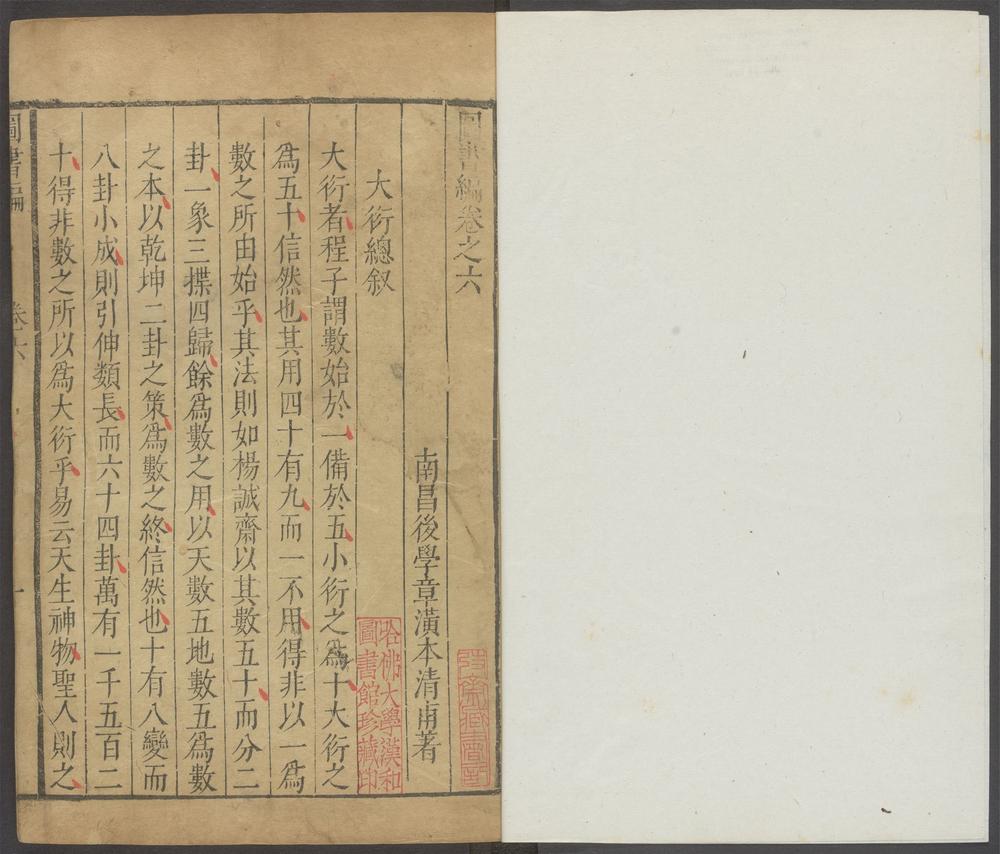 圖書編卷之六
南昌後學章潢本清甫著
大衍總叙
大衍者程子謂數始於一備於五小衍之爲十大衍之
爲五十信然也其用四十有九而一不用得非以一爲
數之所由始乎其法則如楊誠齋以其數五十而分二
卦一象三揲四歸餘爲數之用以天數五地數五爲數
之本以乾坤二卦之策爲數之終信然也十有八變而
八卦小成則引伸類長而六十四卦萬有一千五百二
十得非數之所以爲大衍乎易云天生神物聖人則之
圖書編
卷六
一
哈佛大學漢和
圖書館珍藏印